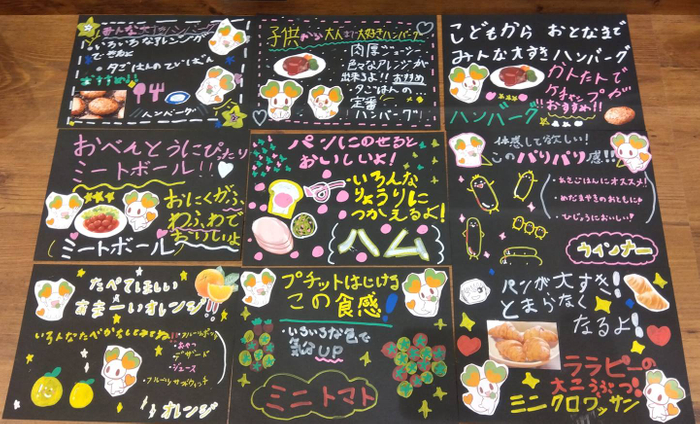 みんな大すきハンバーグ
いろいろなアレンジが
できるよ
夕ごはんのていばん
おすすめ!!
ハンバーグ
子供から大人まで大好きハンバーグ
肉厚ジューシー
色々なアレンジが
出来るよ!! おすすめ
夕ごはんの
定番
ハンバーグ!
こどもから おとなまで
みんな大すきハンバーグ
カンタンで
ケチャップが
おすすめ!!
ハンバーグ
おべんとうにぴったり
ミートボール!!
おにくがふ
わふわで
おいしいよ
ミートボール
パンにのせると
おいしいよ!
・いろんな
りょうりに
つかえるよ!
ハム
体感して欲しい!
このパリパリ感!!
・あさごはんにオススメ!
・めだまやきのおともに
・ひじょうにおいしい!
ウインナー
たべてほしい
あまーいオレンジ!!
いろんなたべかたしてみてね
・おやつ
・デザート
・ジュース
・フルーツサンドウィッチ
オレンジ
プチットはじける
この食感!
・いろいろな色で
気分UP
ミニトマト
パンが大すき!
とまらなく
なるよ!
ララピーの
大こうぶつ!
ミニクロワッサン